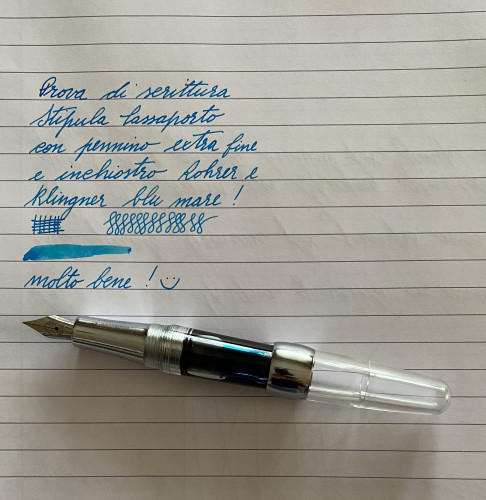 Prova di scrittura
Stipula Passaporto
con pennino extra fine
e inchiostro Rohrer e
Klingner blu mare !
molto bene ! :)